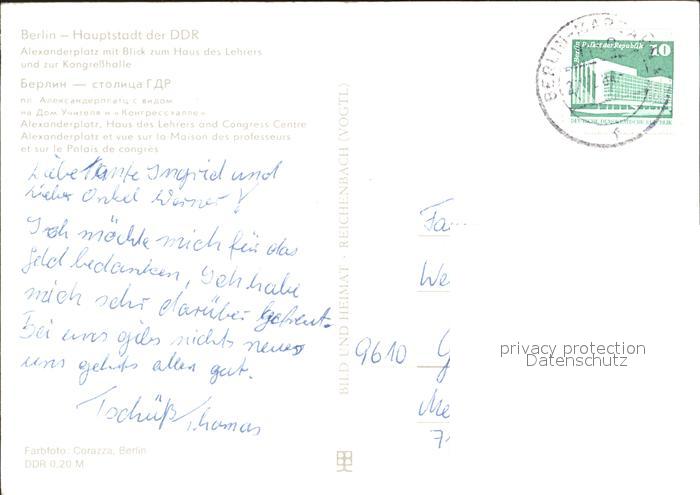 Berlin – Hauptstadt der DDR
Alexanderplatz mit Blick zum Haus des Lehrers
und zur Kongreßhalle
Берлин — столица ГДР
пл. Александерплатц с видом
на Дом Учителя и «Конгрессхалле»
Alexanderplatz, Haus des Lehrers and Congress Centre
Alexanderplatz et vue sur la Maison des professeurs
et sur le Palais de congrès
Liebe Tante Ingrid und
Lieber Onkel Werner!
Ich möchte mich für das
Geld bedanken, Ich habe
mich sehr darüber gefreut.
Bei uns gibs nichts neues
uns gehts allen gut.
Tschüß Thomas
Farbfoto: Corazza, Berlin
DDR 0,20 M
BILD UND HEIMAT · REICHENBACH (VOGTL)
BERLIN-MARZAHN
Berlin Palast der Republik 10
DEUTSCHE DEMOKRATISCHE REPUBLIK
Fa
We
9610 G
Me
privacy protection
Datenschutz